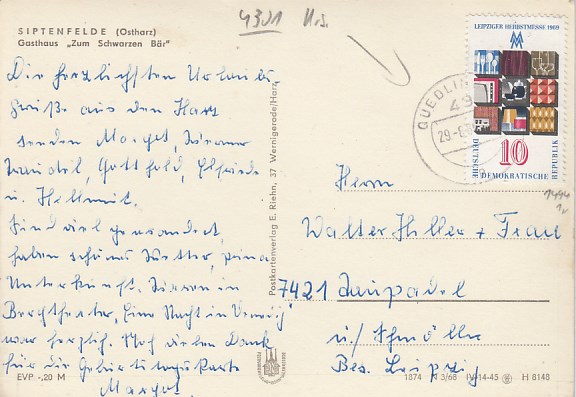 SIPTENFELDE (Ostharz)
Gasthaus „Zum Schwarzen Bär"
4301
Die herzlichsten Urlaubs
grüße aus den Harz
senden Margot,
Gotthold, Elfriede
u. Hellmut.
Sind viel gewandert,
haben schönes Wetter, prima
Unterkunft. Waren im
Bergtheater, Eine Nacht in Venedig
war herrlich. Noch vielen Dank
für die Geburtstagskarte
Margot
EVP -,20 M
Postkartenverlag E. Riehn, 37 Wernigerode/Harz
QUEDLIN
49
29.-8.
LEIPZIGER HERBSTMESSE 1969
10
DEUTSCHE DEMOKRATISCHE REPUBLIK
Herrn
Walter Hiller + Frau
7421
ü./ Schmölln
Bez. Leipzig
1874 N 3/68 IV-14-45 H 8148